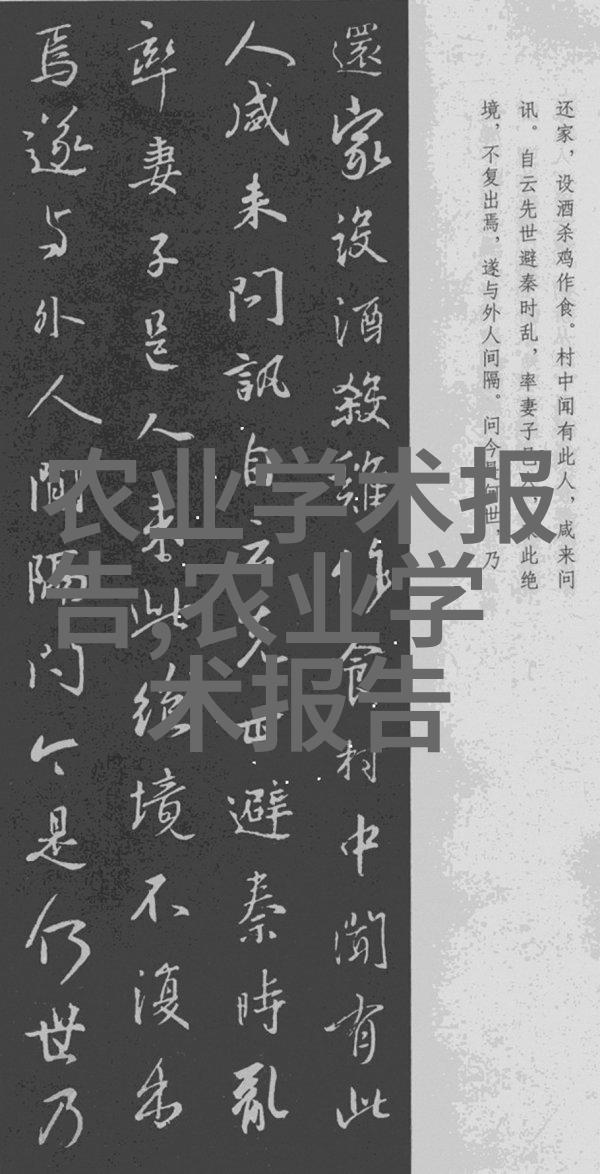 还家，设酒杀鸡作食。村中闻有此人，咸来问
讯。自云先世避秦时乱，率妻子邑来此绝
境，不复出焉，遂与外人间隔。问今世，乃
還家設酒殺雞作食村中聞有此
人咸来问訊自云先世避秦時亂
率妻子邑人来此絶境不復出
焉遂与外人間隔问今是何世乃
农业学术报
告,农业学
术报告